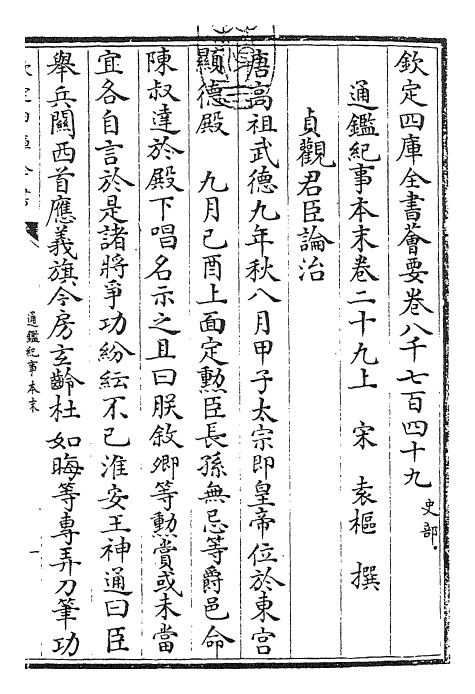 欽定四庫全書薈要卷八千七百四十九 史部
通鑑紀事本末卷二十九上 宋 袁樞 撰
貞觀君臣論治
唐高祖武德九年秋八月甲子太宗即皇帝位於東宮
顯德殿 九月己酉上面定勲臣長孫無忌等爵邑命
陳叔達於殿下唱名示之且曰朕敘卿等勲賞或未當
宜各自言於是諸將爭功紛紜不已淮安王神通曰臣
舉兵關西首應義旗今房玄齡杜如晦等專弄刀筆功
通鑑紀事本末
一